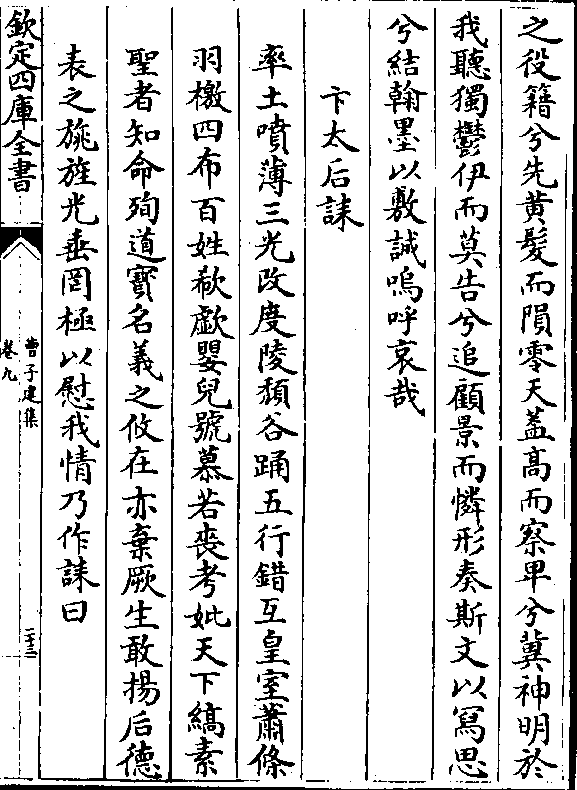 之役籍兮先黄髮而隕零天葢髙而察卑兮冀神明於
我聽獨鬱伊而莫告兮追顧景而憐形奏斯文以寫思
兮結翰墨以敷誠嗚呼哀哉
卞太后誄
率土噴薄三光改度陵頽谷踊五行錯互皇室蕭條
羽檄四布百姓欷歔嬰兒號慕若喪考妣天下縞素
聖者知命殉道寳名義之攸在亦棄厥生敢揚后德
表之旐旌光垂罔極以慰我情乃作誄曰
欽定四庫全書
曹子建集
卷九
二十三